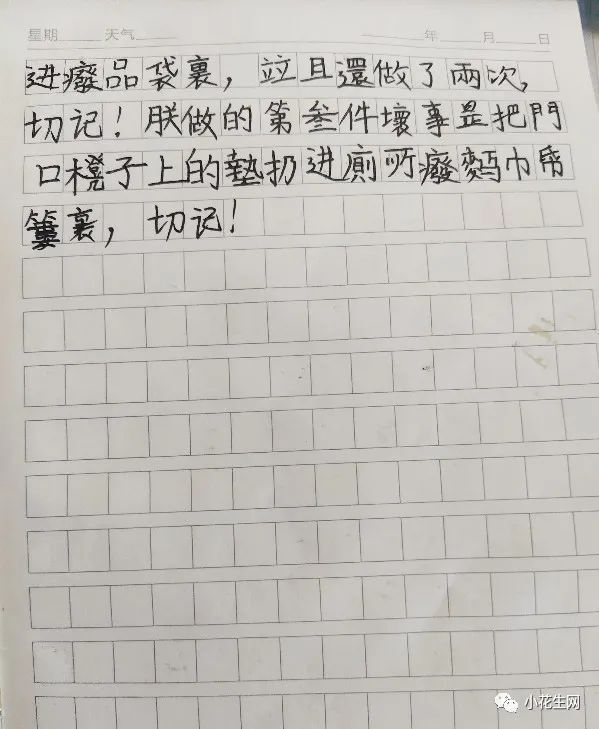 星期 天气 年 月 日
进癈品袋裏，竝且還做了兩次，
切记！朕做的第叁件壞事是把門
口櫈子上的墊扔进廁所癈巾帋
簍裏，切记！
小花生网